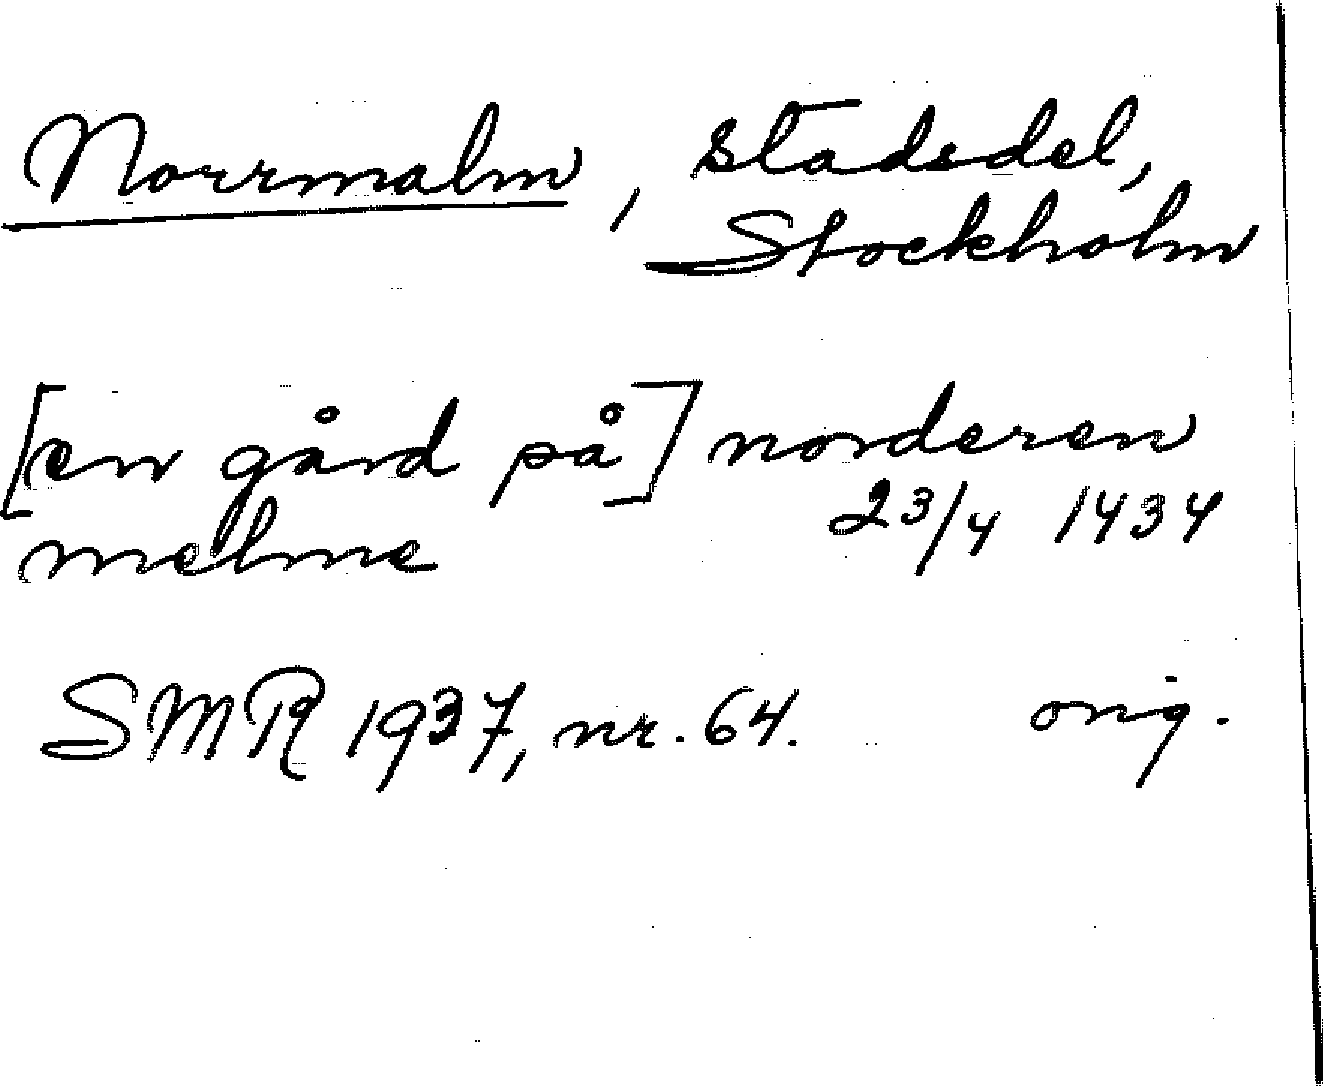 Norrmalm, stadsdel,
Stockholm
[en gård på] norderen
melme 23/4 1434
SMR 1937, nr. 64. orig.